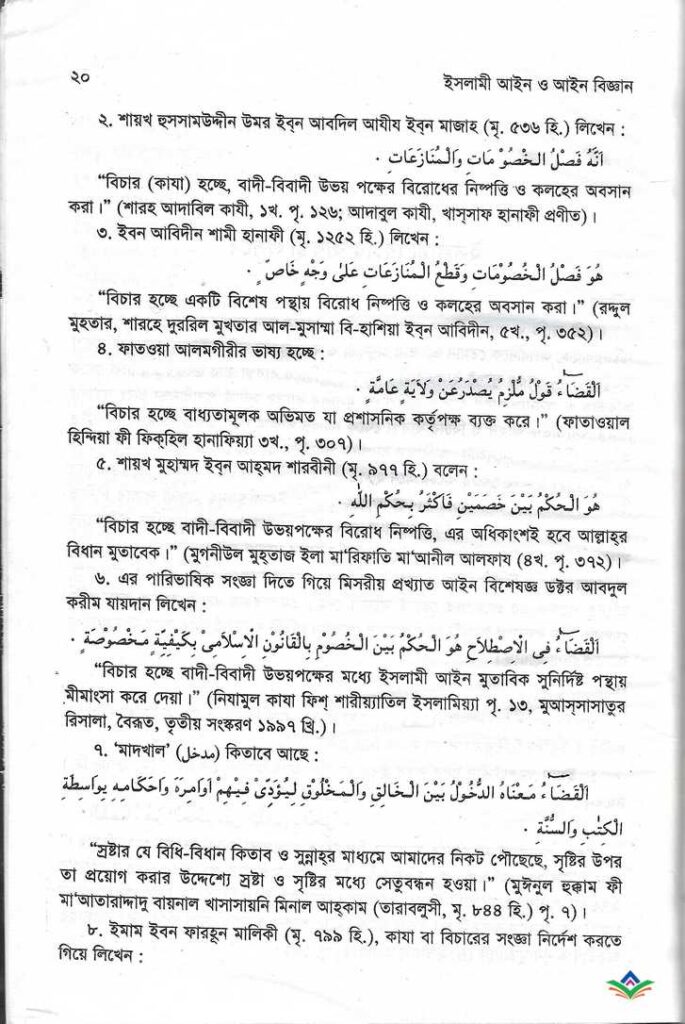 ২০ ইসলামী আইন ও আইন বিজ্ঞান
২. শায়খ হুসসামউদ্দীন উমর ইব্‌ন আবদিল আযীয ইব্‌ন মাজাহ (মৃ. ৫৩৬ হি.) লিখেন :
اَنَّهُ فَصْلُ الْخُصُوْمَاتِ وَالْمُنَازَعَاتِ .
“বিচার (কাযা) হচ্ছে, বাদী-বিবাদী উভয় পক্ষের বিরোধের নিষ্পত্তি ও কলহের অবসান
করা।” (শারহ আদাবিল কাযী, ১খ. পৃ. ১২৬; আদাবুল কাযী, খাস্‌সাফ হানাফী প্রণীত)।
৩. ইবন আবিদীন শামী হানাফী (মৃ. ১২৫২ হি.) লিখেন :
هُوَ فَصْلُ الْخُصُوْمَاتِ وَقَطْعُ الْمُنَازَعَاتِ عَلٰى وَجْهٍ خَاصٍّ .
“বিচার হচ্ছে একটি বিশেষ পন্থায় বিরোধ নিষ্পত্তি ও কলহের অবসান করা।” (রদ্দুল
মুহতার, শারহে দুররিল মুখতার আল-মুসাম্মা বি-হাশিয়া ইবন আবিদীন, ৫খ., পৃ. ৩৫২)।
৪. ফাতওয়া আলমগীরীর ভাষ্য হচ্ছে :
اَلْقَضَاءُ قَوْلُ مُلْزِمُ يُصْدَرُ عَنْ وِلَايَةٍ عَامَّةٍ .
“বিচার হচ্ছে বাধ্যতামূলক অভিমত যা প্রশাসনিক কর্তৃপক্ষ ব্যক্ত করে।” (ফাতাওয়াল
হিন্দিয়া ফী ফিক্‌হিল হানাফিয়্যা ৩খ., পৃ. ৩০৭)।
৫. শায়খ মুহাম্মদ ইব্‌ন আহ্‌মদ শারবীনী (মৃ. ৯৭৭ হি.) বলেন :
هُوَ الْحُكْمُ بَيْنَ خَصَمَيْنِ فَاَكْثَرُ بِحُكْمِ اللّٰهِ .
“বিচার হচ্ছে বাদী-বিবাদী উভয়পক্ষের বিরোধ নিষ্পত্তি, এর অধিকাংশই হবে আল্লাহ্‌র
বিধান মুতাবেক।” (মুগনীউল মুহ্‌তাজ ইলা মা'রিফাতি মা'আনীল আলফায (৪খ. পৃ. ৩৭২)।
৬. এর পারিভাষিক সংজ্ঞা দিতে গিয়ে মিসরীয় প্রখ্যাত আইন বিশেষজ্ঞ ডক্টর আবদুল
করীম যায়দান লিখেন :
اَلْقَضَاءُ فِى الْاِصْطِلَاحِ هُوَ الْحُكْمُ بَيْنَ الْخُصُوْمِ بِالْقَانُوْنِ الْاِسْلَامِىْ بِكَيْفِيَّةٍ مَخْصُوْصَةٍ .
“বিচার হচ্ছে বাদী-বিবাদী উভয়পক্ষের মধ্যে ইসলামী আইন মুতাবিক সুনির্দিষ্ট পন্থায়
মীমাংসা করে দেয়া।” (নিযামুল কাযা ফিশ্ শারীয়্যাতিল ইসলামিয়্যা পৃ. ১৩, মুআস্‌সাসাতুর
রিসালা, বৈরূত, তৃতীয় সংস্করণ ১৯৯৭ খ্রি.)।
৭. ‘মাদখাল’ (مدخل) কিতাবে আছে :
اَلْقَضَاءُ مَعْنَاهُ الدُّخُوْلُ بَيْنَ الْخَالِقِ وَالْمَخْلُوْقِ لِيُؤَدِّىْ فِيْهِمْ اَوَامِرَهُ وَاَحْكَامِهِ بِوَاسِطَةِ
الْكِتٰبِ وَالسُّنَّةِ .
“স্রষ্টার যে বিধি-বিধান কিতাব ও সুন্নাহ্‌র মাধ্যমে আমাদের নিকট পৌছেছে, সৃষ্টির উপর
তা প্রয়োগ করার উদ্দেশ্যে স্রষ্টা ও সৃষ্টির মধ্যে সেতুবন্ধন হওয়া।” (মুঈনুল হুক্কাম ফী
মা'আতারাদ্দাদু বায়নাল খাসাসায়নি মিনাল আহ্‌কাম (তারাবলুসী, মৃ. ৮৪৪ হি.) পৃ. ৭)।
৮. ইমাম ইবন ফারহূন মালিকী (মৃ. ৭৯৯ হি.), কাযা বা বিচারের সংজ্ঞা নির্দেশ করতে
গিয়ে লিখেন :